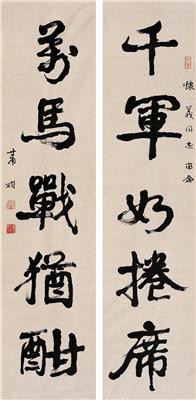 千軍如捲席
懷義同志留念
萬馬戰猶酣
蕭嫻